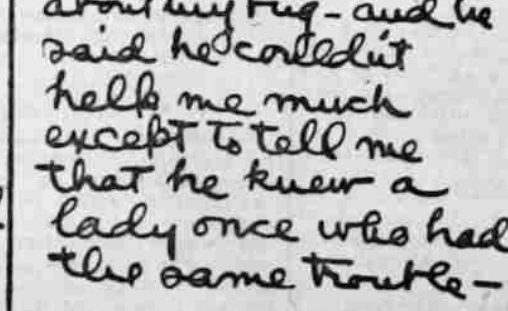 about my rug - and he
said he couldn't
help me much
except to tell me
that he knew a
lady once who had
the same trouble -